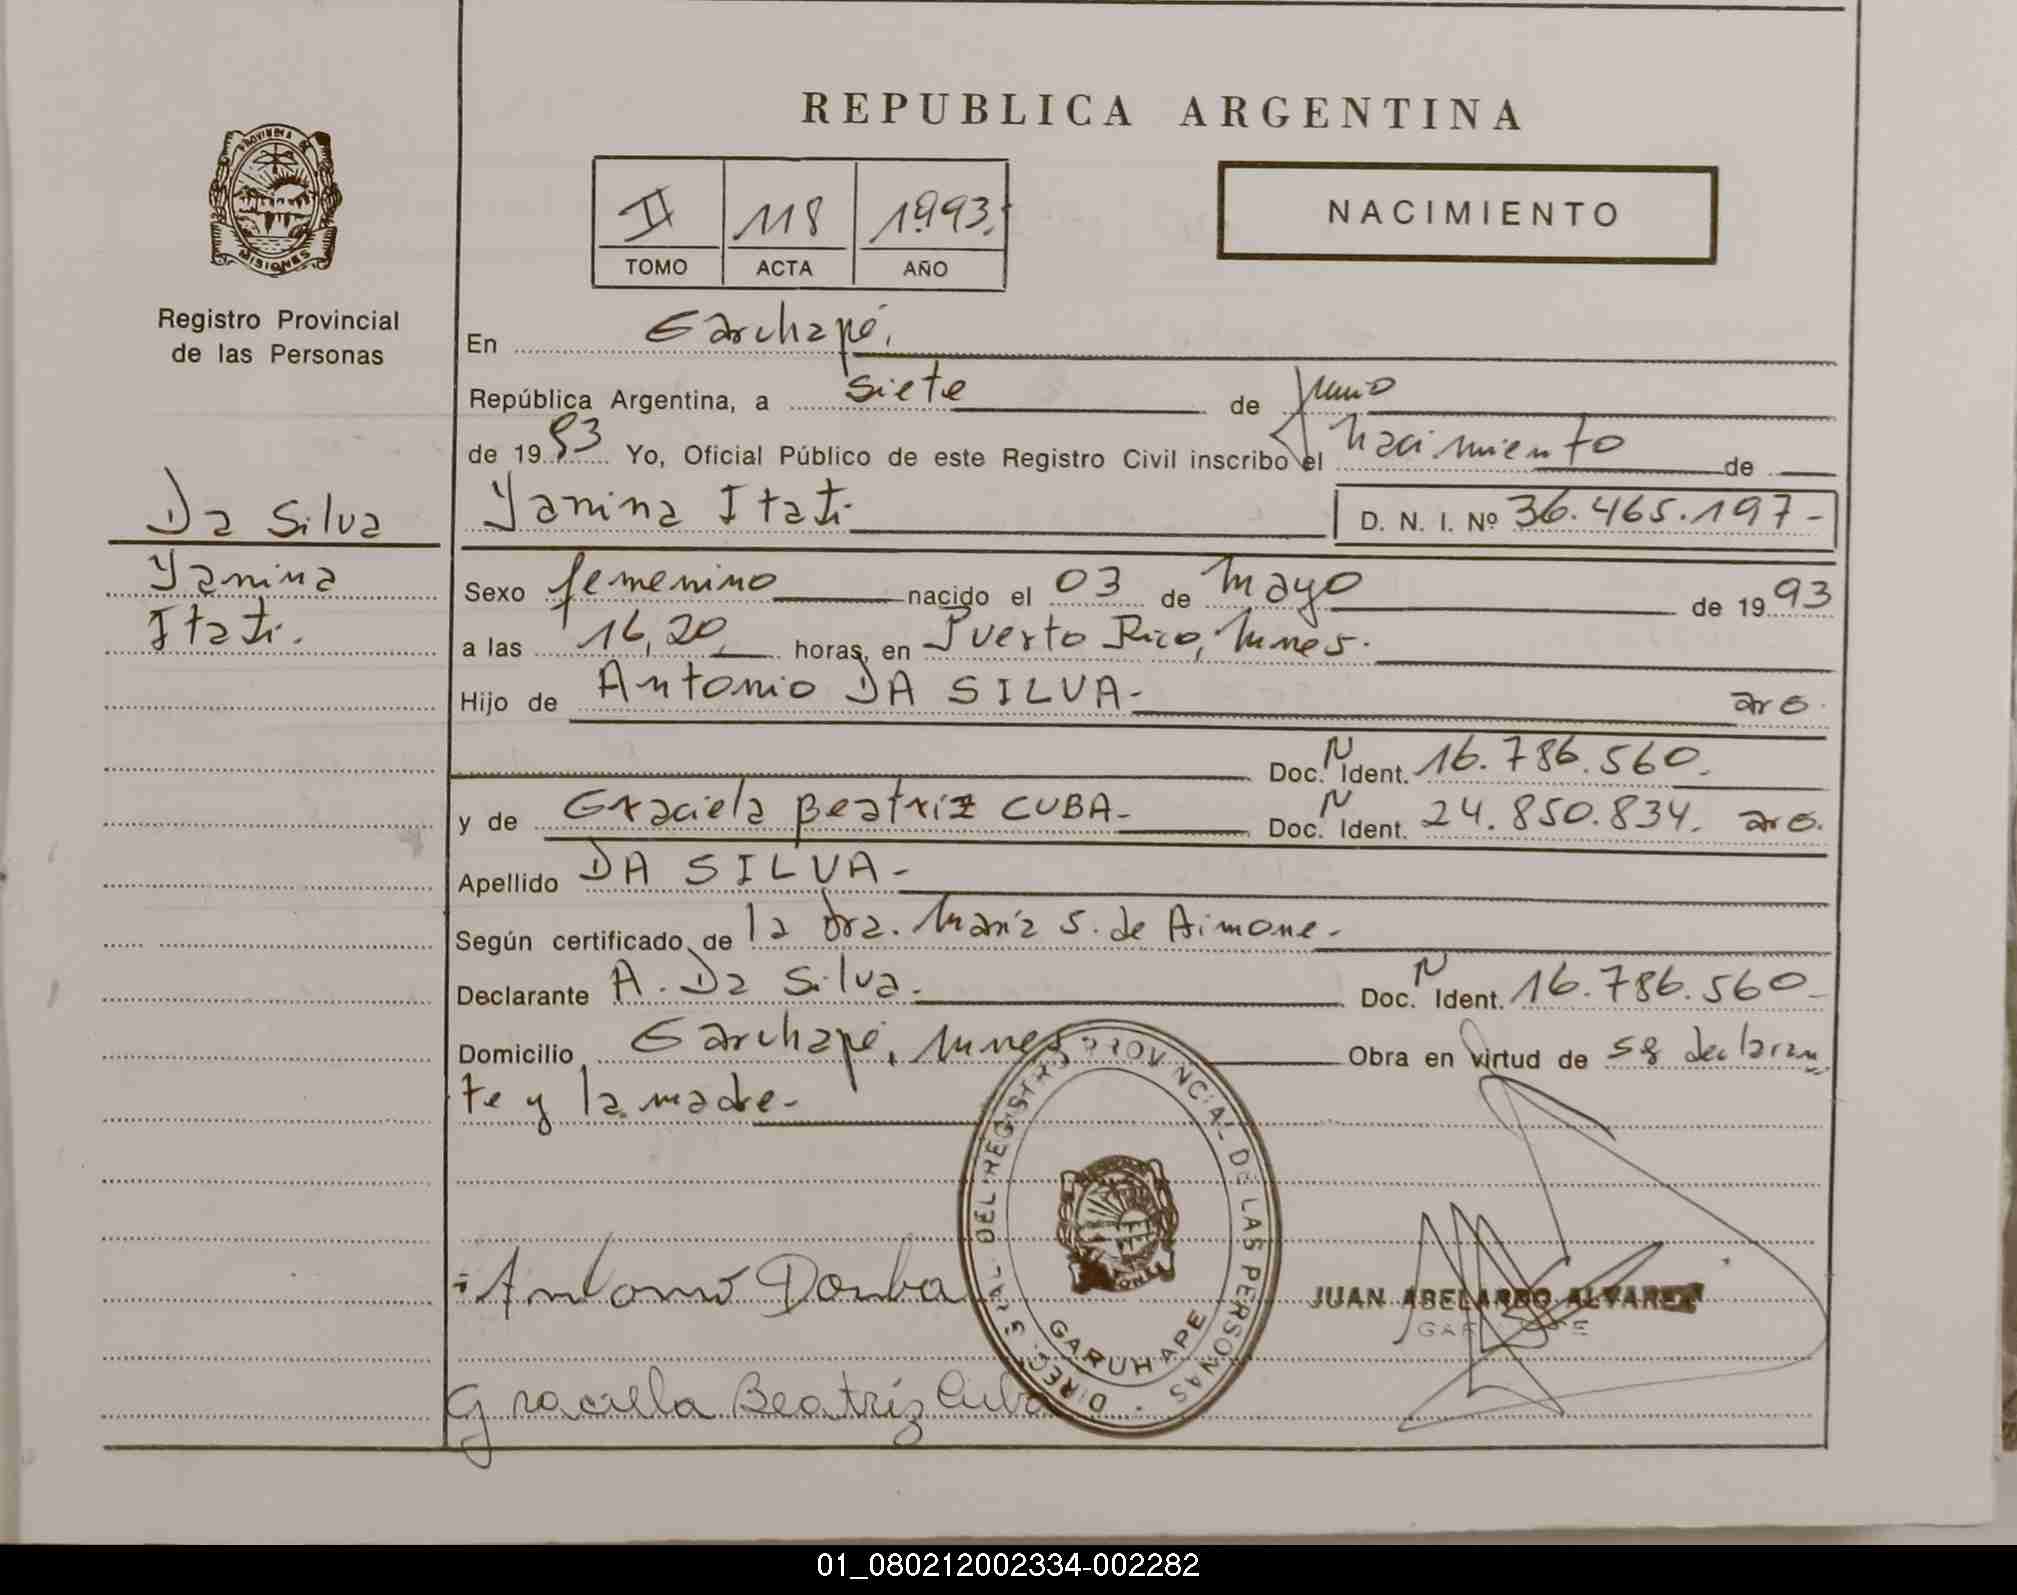 REPUBLICA ARGENTINA
PROVINCIA DE
MISIONES
Registro Provincial
de las Personas
II 118 1993.
TOMO ACTA AÑO
NACIMIENTO
En Garuhapé.
República Argentina, a siete de junio
de 1993 Yo, Oficial Público de este Registro Civil inscribo el nacimiento de
Da Silva
Yanina Itatí. D. N. I. Nº 36.465.197-
Yanina
Sexo femenino nacido el 03 de mayo de 1993
Itatí.
a las 16,20 horas, en Puerto Rico, Mnes.
Hijo de Antonio DA SILVA- aro.
Doc. N Ident. 16.786.560.
y de Graciela Beatriz CUBA- Doc. N Ident. 24.850.834. aro.
Apellido DA SILVA-
Según certificado de la Dra. María S. de Aimone-
Declarante A. Da Silva. Doc. N Ident. 16.786.560-
Domicilio Garuhapé, Mnes Obra en virtud de ser declaran
te y la madre-
DIREC. GRAL. DEL REGISTRO PROVINCIAL DE LAS PERSONAS
GARUHAPE
Antonio
JUAN ABELARDO ALVAREZ
Graciela Beatriz Cuba
01_080212002334-002282